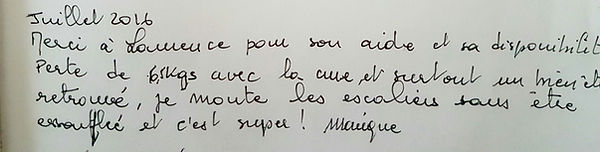 Juillet 2016
Merci à Laurence pour son aide et sa disponibilit
Perte de 6,5kgs avec la cure, et surtout un bien êt
retrouvé, je monte les escaliers sans être
essoufflé et c'est super! Monique